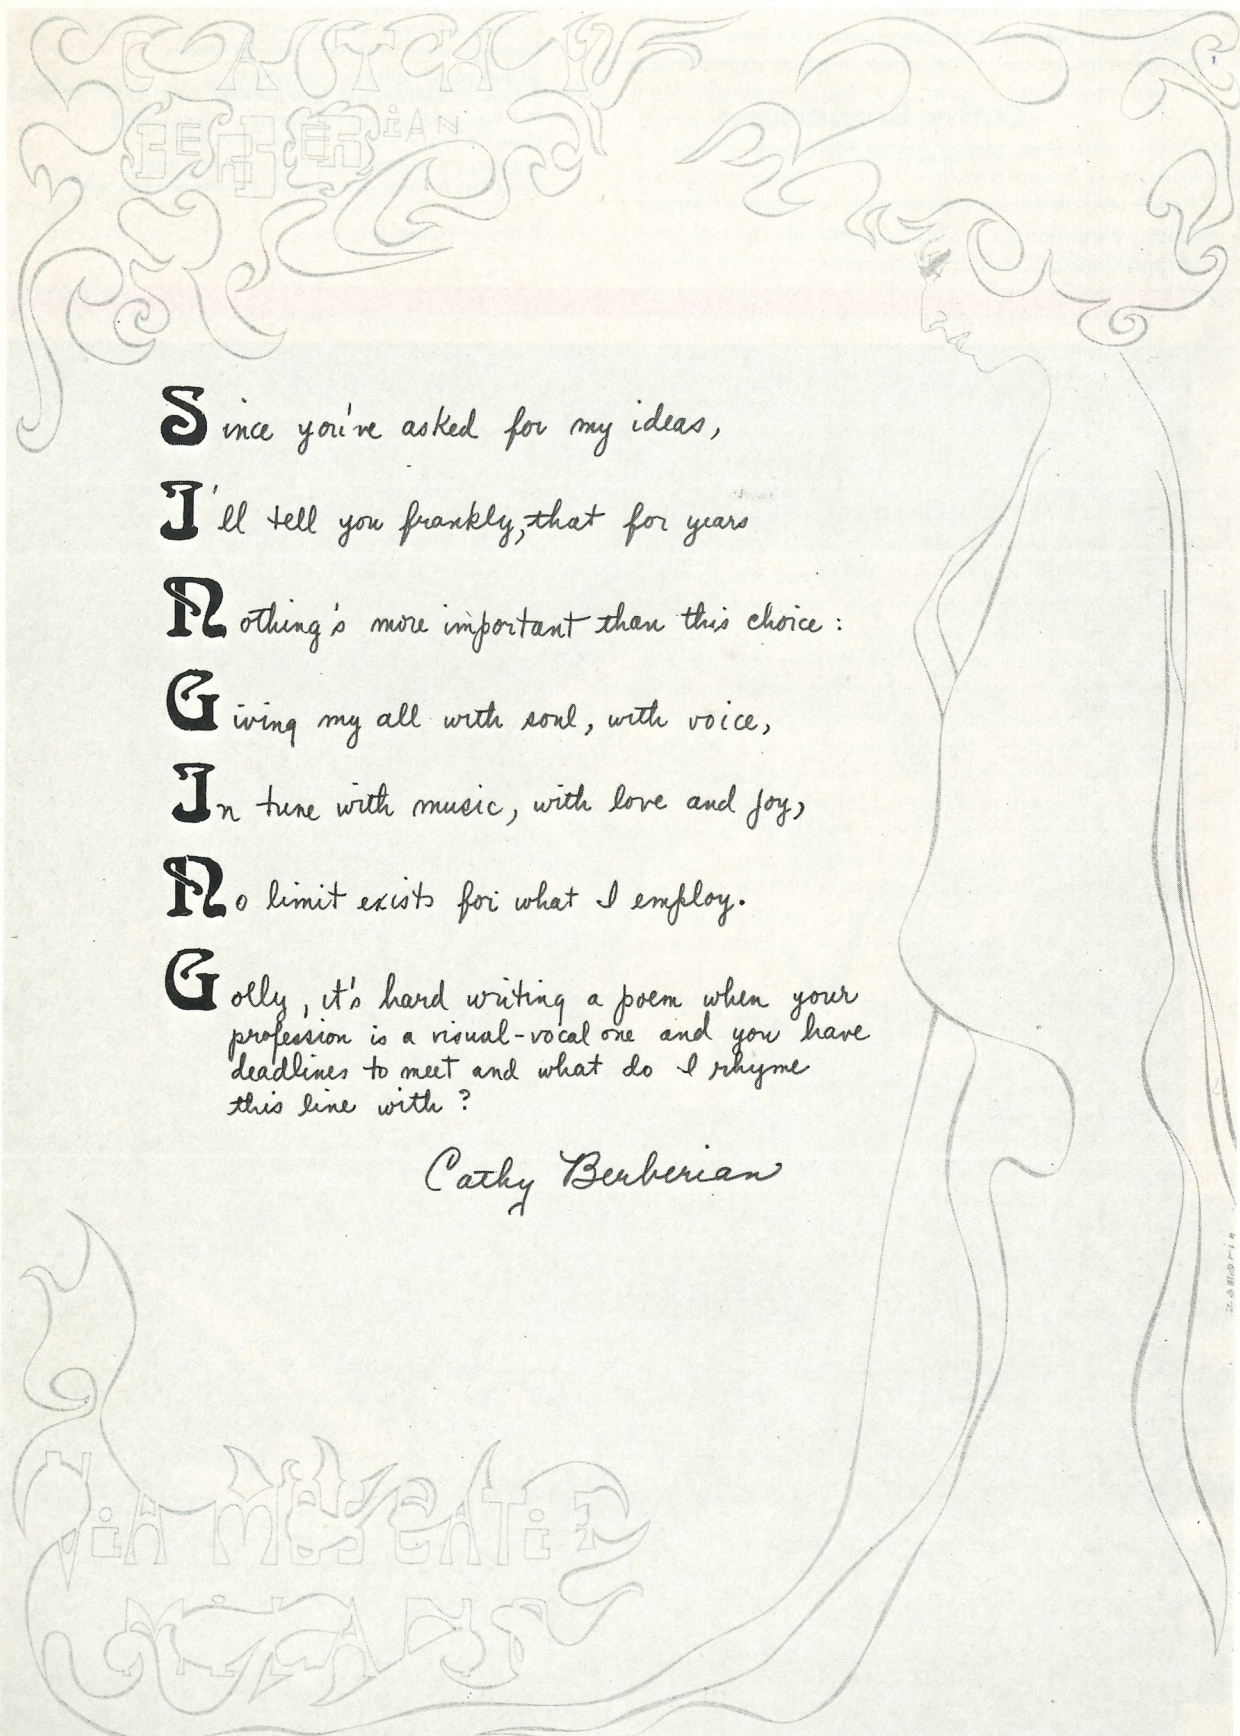 CATHY
BERBERiAN
Since you've asked for my ideas,
I'll tell you frankly, that for years
Nothing's more important than this choice:
Giving my all with soul, with voice,
In tune with music, with love and joy,
No limit exists for what I employ.
Golly, it's hard writing a poem when your
profession is a visual-vocal one and you have
deadlines to meet and what do I rhyme
this line with?
Cathy Berberian
ViA MOSCATi
MiLANO